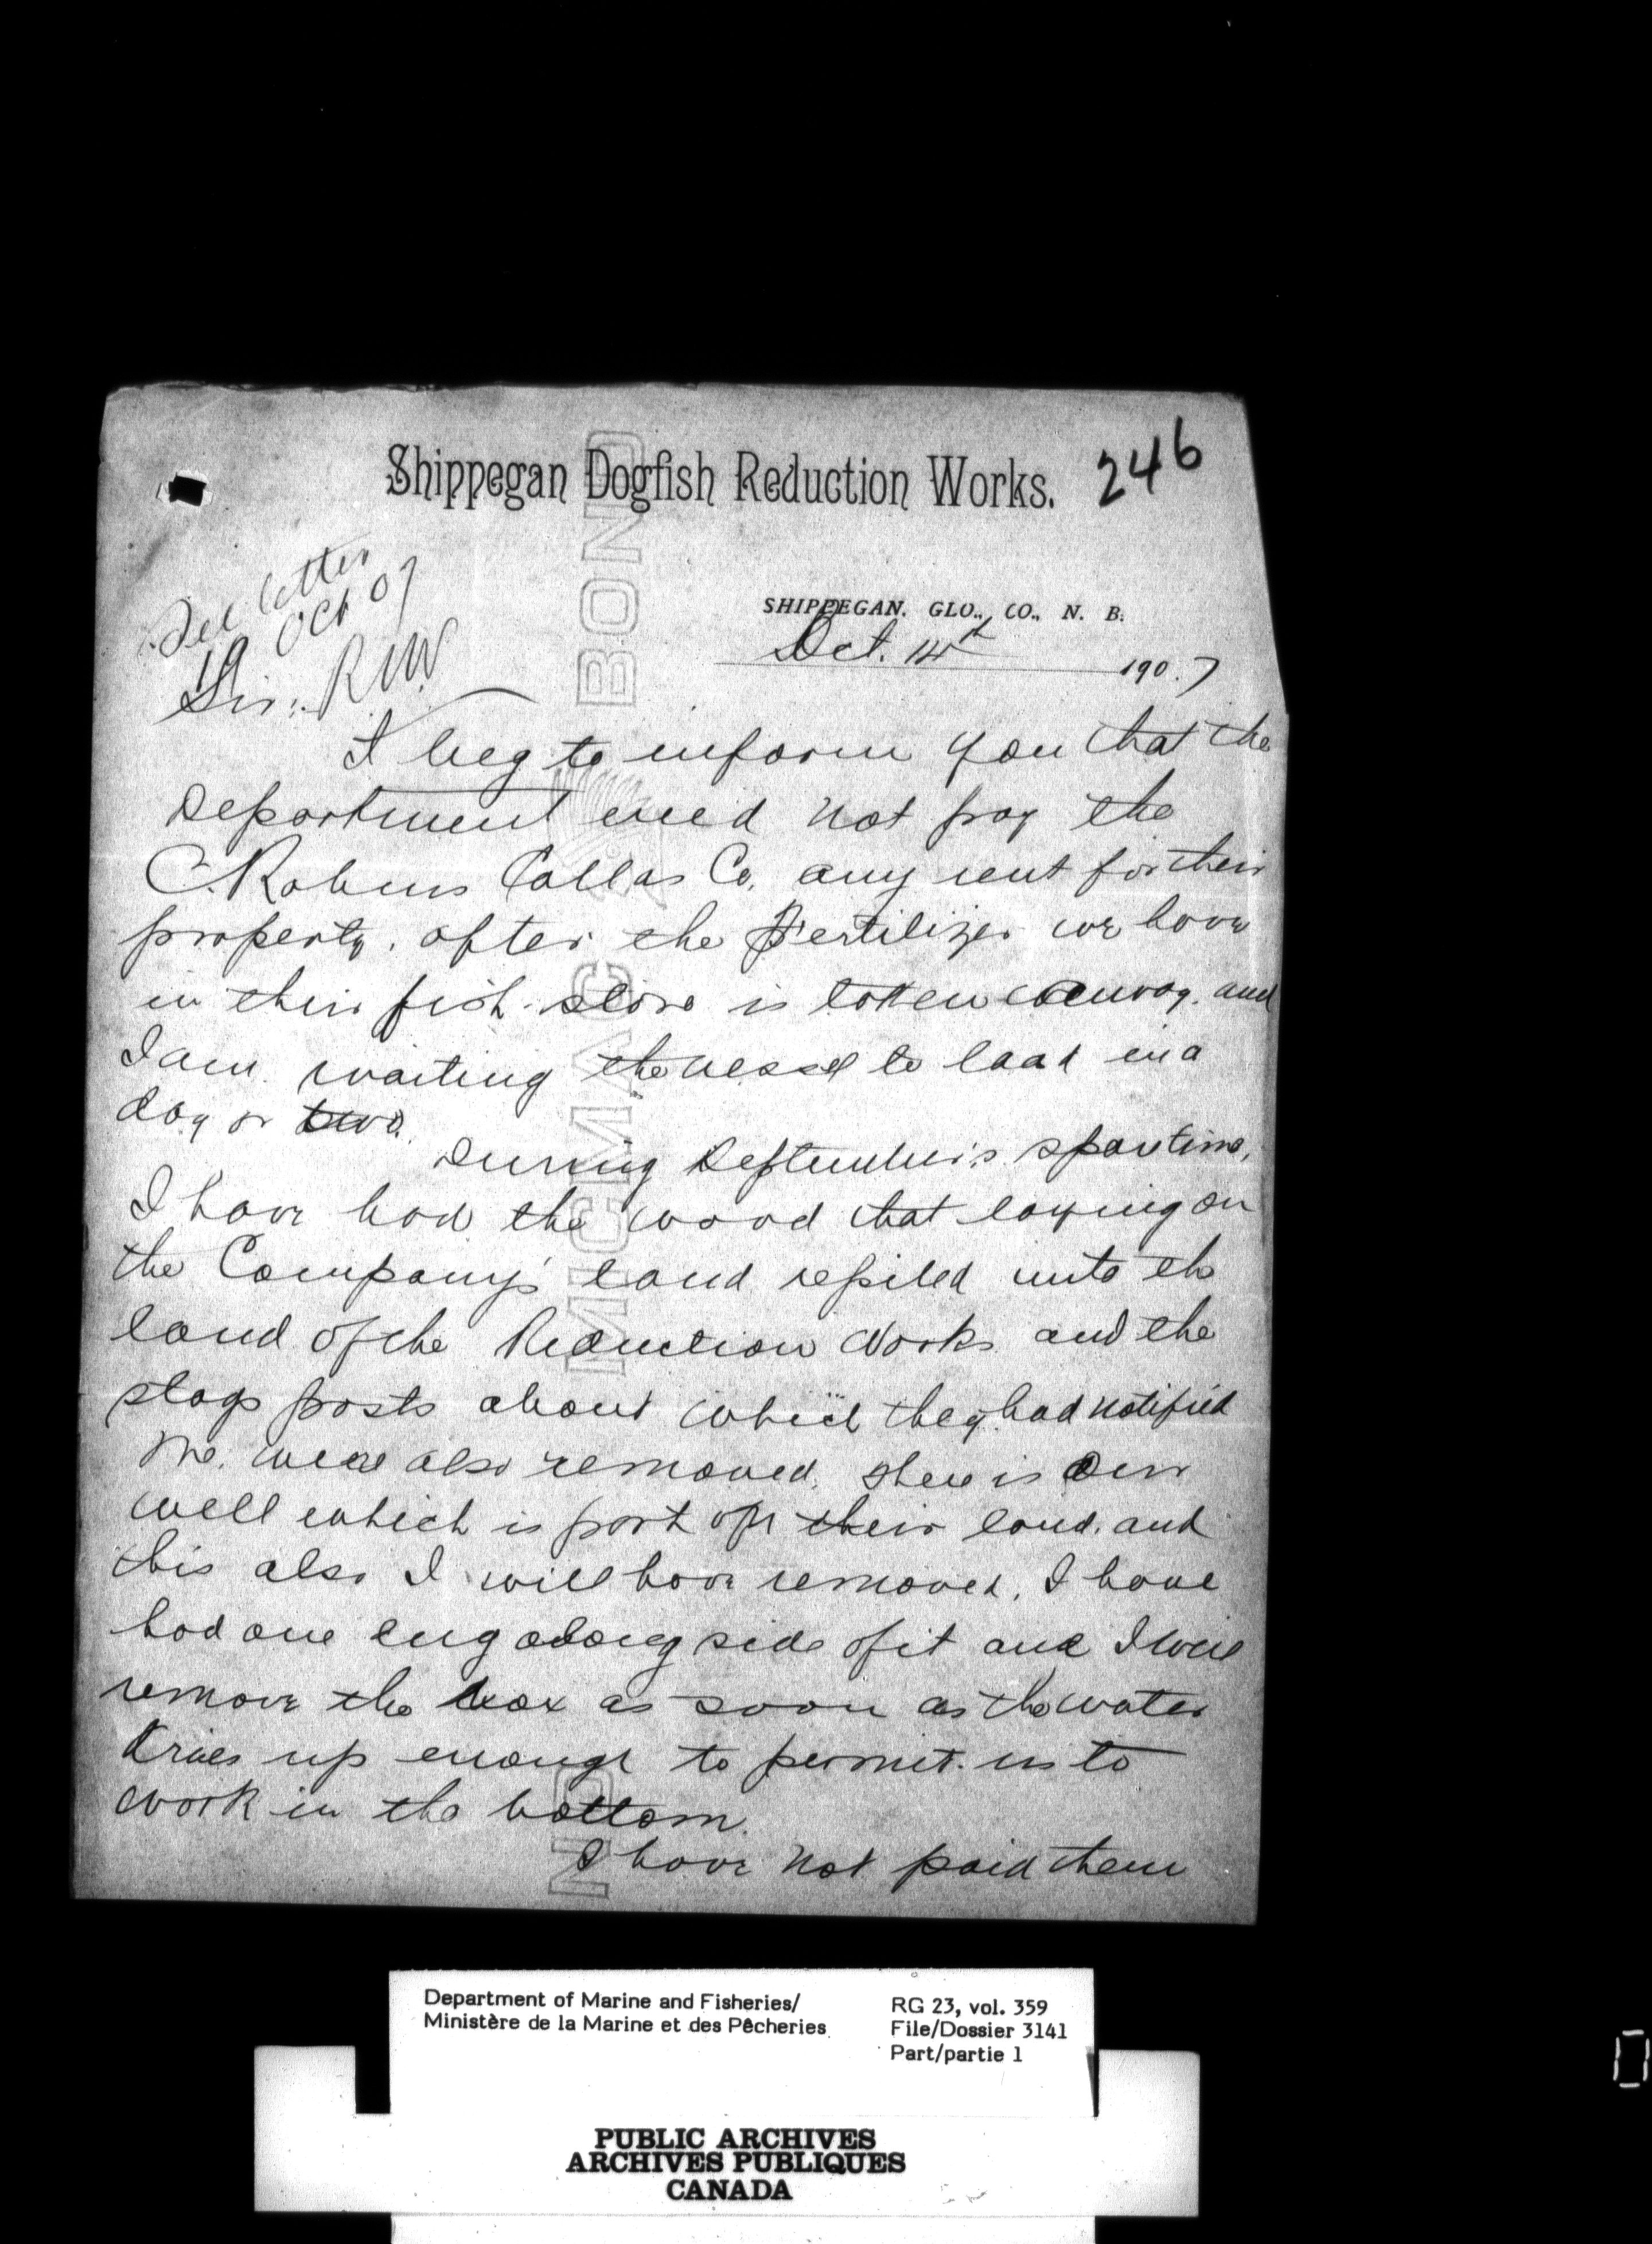 Shippegan Dogfish Reduction Works.
246
See letter
19 Oct 07
R W
SHIPPEGAN. GLO., CO., N. B.
Oct. 14th 1907
Sir:
I beg to inform you that the
Department need not pay the
C. Robins Collas Co. any rent for their
property, after the Fertilizer we have
in their fish store is taken away, and
I am waiting the vessel to load in a
day or two.
During September's spare time,
I have had the wood that laying on
the Company's land repiled unto the
land of the Reduction Works and the
stage posts about which they had notified
me, were also removed, there is our
well which is part on their land, and
this also I will have removed, I have
had one dug along side of it and I will
remove the box as soon as the water
dries up enough to permit us to
work in the bottom.
I have not paid them
MICMAC BOND
Department of Marine and Fisheries/
Ministère de la Marine et des Pêcheries
RG 23, vol. 359
File/Dossier 3141
Part/partie 1
PUBLIC ARCHIVES
ARCHIVES PUBLIQUES
CANADA